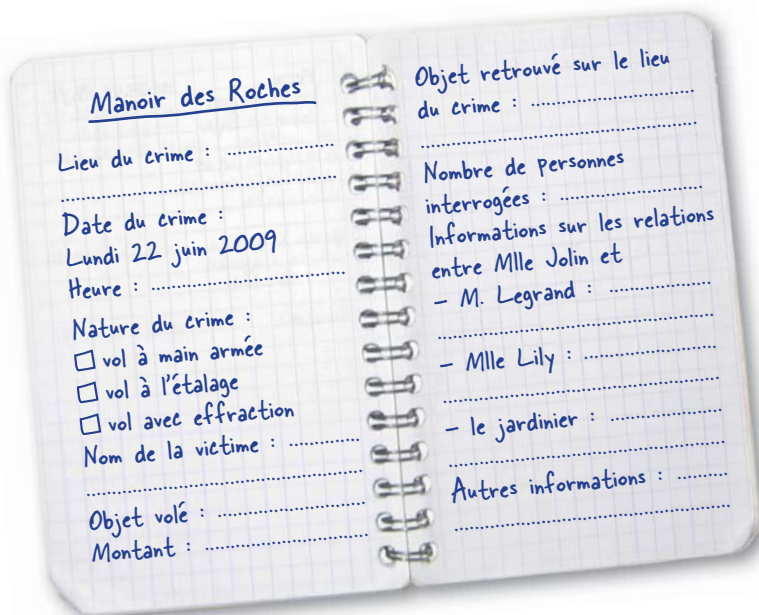 Manoir des Roches
Lieu du crime : ..................
..................................................
Date du crime :
Lundi 22 juin 2009
Heure : ..................................
Nature du crime :
☐ vol à main armée
☐ vol à l'étalage
☐ vol avec effraction
Nom de la victime : ............
..................................................
Objet volé : ..........................
Montant : ............................
Objet retrouvé sur le lieu
du crime : ............................
..................................................
Nombre de personnes
interrogées : ........................
Informations sur les relations
entre Mlle Jolin et
– M. Legrand : ..................
..................................................
– Mlle Lily : ......................
..................................................
– le jardinier : ..................
..................................................
Autres informations : ........
..................................................